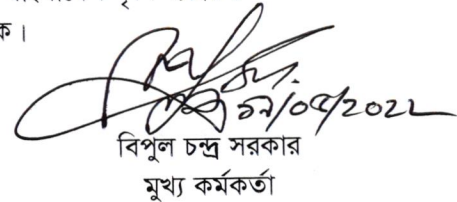 ক।
১৯/০৫/2022
বিপুল চন্দ্র সরকার
মুখ্য কর্মকর্তা